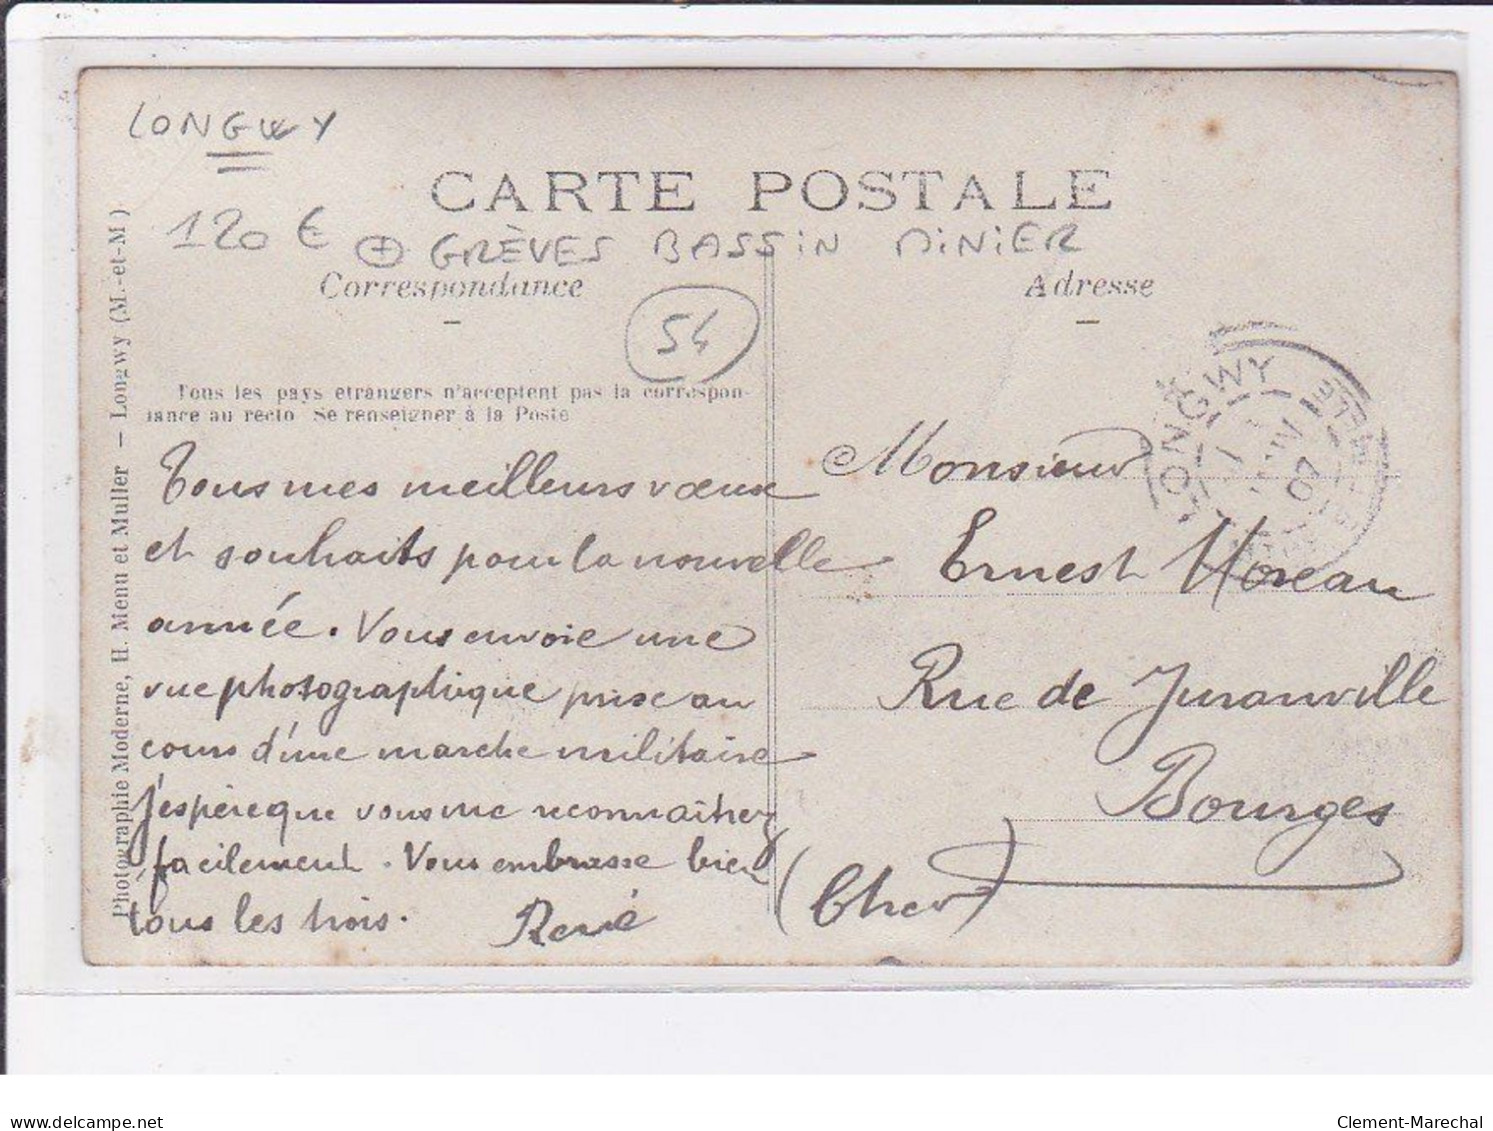 LONGWY
CARTE POSTALE
120 € GRÈVES BASSIN MINIER
Correspondance
Adresse
54
Tous les pays étrangers n'acceptent pas la correspon-
dance au recto Se renseigner à la Poste
Photographie Moderne, H. Menu et Muller — Longwy (M.-et-M)
LONGWY
07
Tous mes meilleurs vœux
et souhaits pour la nouvelle
année. Vous envoie une
vue photographique prise au
cours d'une marche militaire
J'espère que vous me reconnaîtrez
facilement. Vous embrasse bien
tous les trois. René
Monsieur
Ernest Moreau
Rue de Juranville
Bourges
(Cher)
delcampe.net
Clement-Marechal